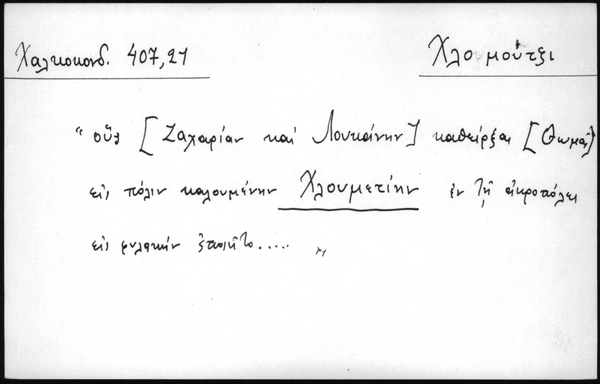 Χαλκοκονδ. 407,21
Χλομούτσι
"οὓς [Ζαχαρίαν καὶ Λουκάνην] καθείρξας [Θωμᾶς]
εἰς πόλιν καλουμένην Χλουμετίην ἐν τῇ ἀκροπόλει
εἰς φυλακὴν ἐποιεῖτο....."